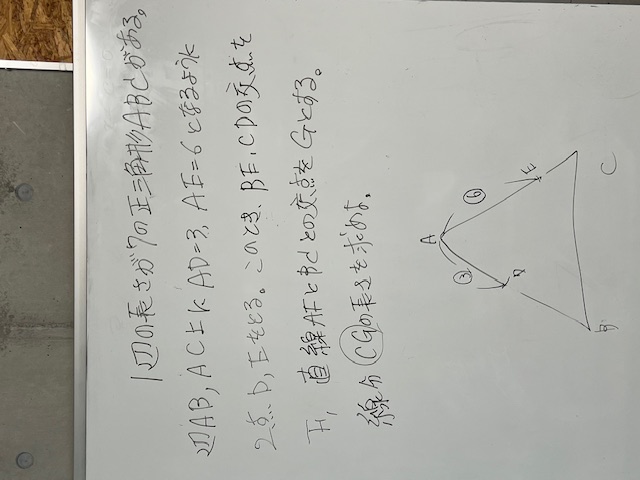 1辺の長さが7の正三角形ABCがある。
辺AB, AC上にAD=3, AE=6となるように
2点D, Eをとる。このとき, BE, CDの交点を
F, 直線AFとBCとの交点をGとする。
線分CGの長さを求めよ。
A
③
D
⑥
E
B
C